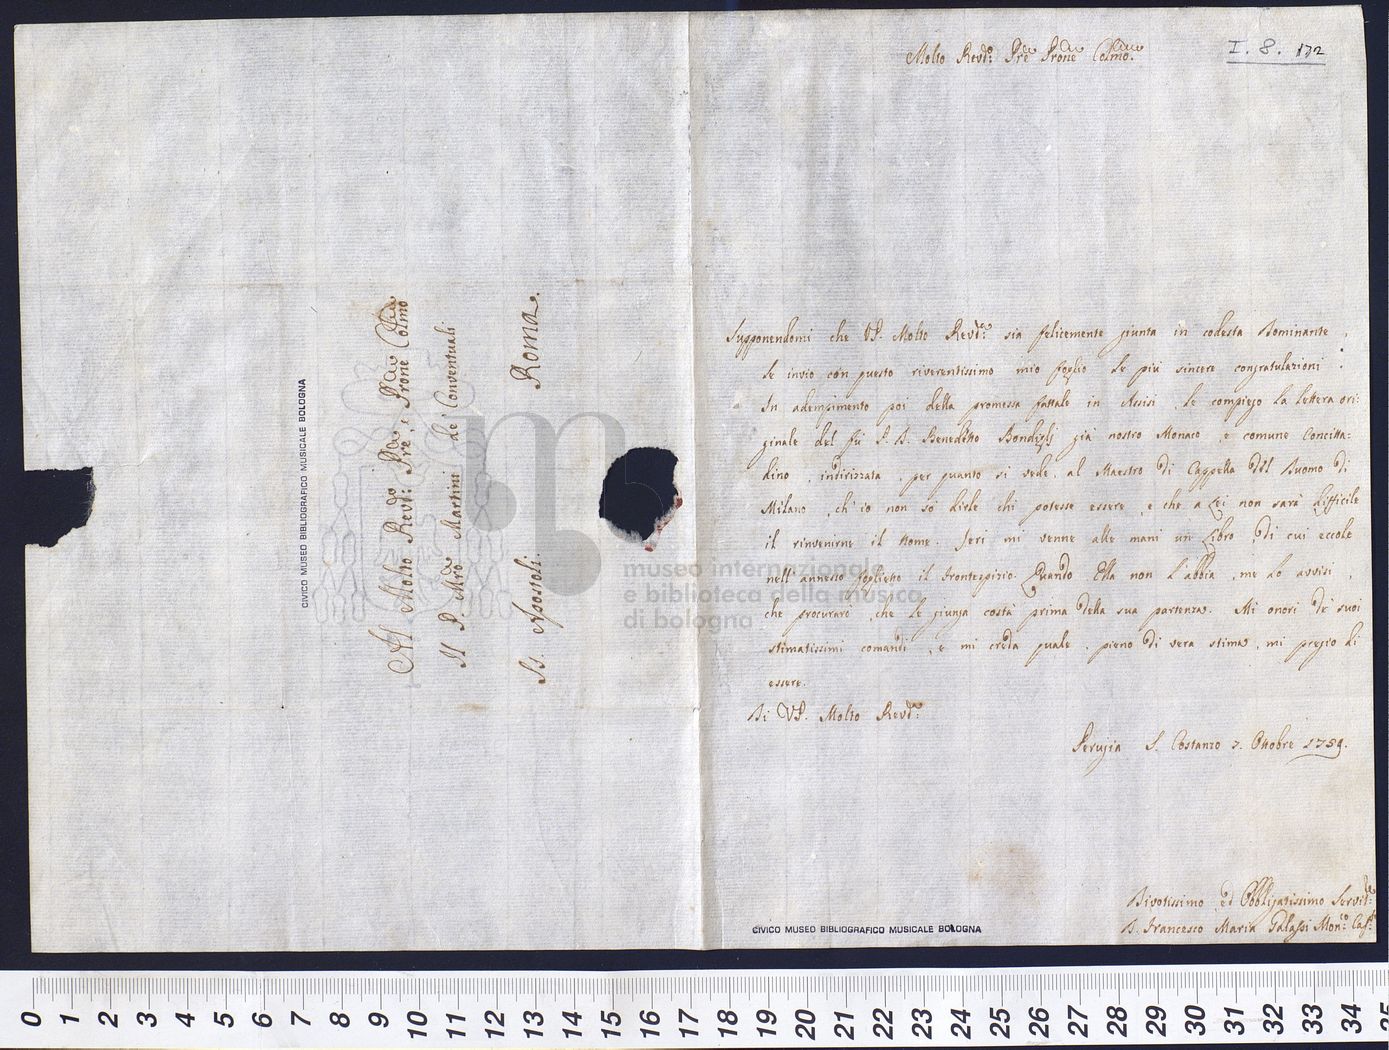 Molto Revdo: Pre Prone Colmo.
I. 8. 172
Supponendomi che VP. Molto Revda: sia felicemente giunta in codesta Dominante,
le invio con questo riverentissimo mio foglio le più sincere congratulazioni.
In adempimento poi della promessa fattale in Assisi, le compiego la lettera ori:
ginale del fù P. D. Benedetto già nostro Monaco, e comune Concitta:
dino, indirizzata, per quanto si vede, al Maestro di Cappella del Duomo di
Milano, ch'io non sò dirle chi potesse essere, e che a Lei non sarà difficile
il rinvenirne il Nome. Jeri mi venne alle mani un Libro, di cui eccole
nell'annesso foglietto il Frontespizio. Quando Ella non l'abbia, me lo avvisi,
che procurarò, che le giunga costà prima della sua partenza. Mi onori de' suoi
stimatissimi comandi, e mi creda quale, pieno di vera stima, mi pregio di
essere.
Di VP. Molto Revda:
Perugia S. Costanzo 7. Ottobre 1759.
Divotissimo, ed Obbligatissimo Servitre:
D. Francesco Maria Galassi Monco:
Al Molto Revdo: Pre, e Prone Colmo
Il P. Mro Martini de' Conventuali
SS. Apostoli. Roma.
CIVICO MUSEO BIBLIOGRAFICO MUSICALE BOLOGNA
CIVICO MUSEO BIBLIOGRAFICO MUSICALE BOLOGNA
museo internazionale
e biblioteca della musica
di bologna
0 1 2 3 4 5 6 7 8 9 10 11 12 13 14 15 16 17 18 19 20 21 22 23 24 25 26 27 28 29 30 31 32 33 34 35